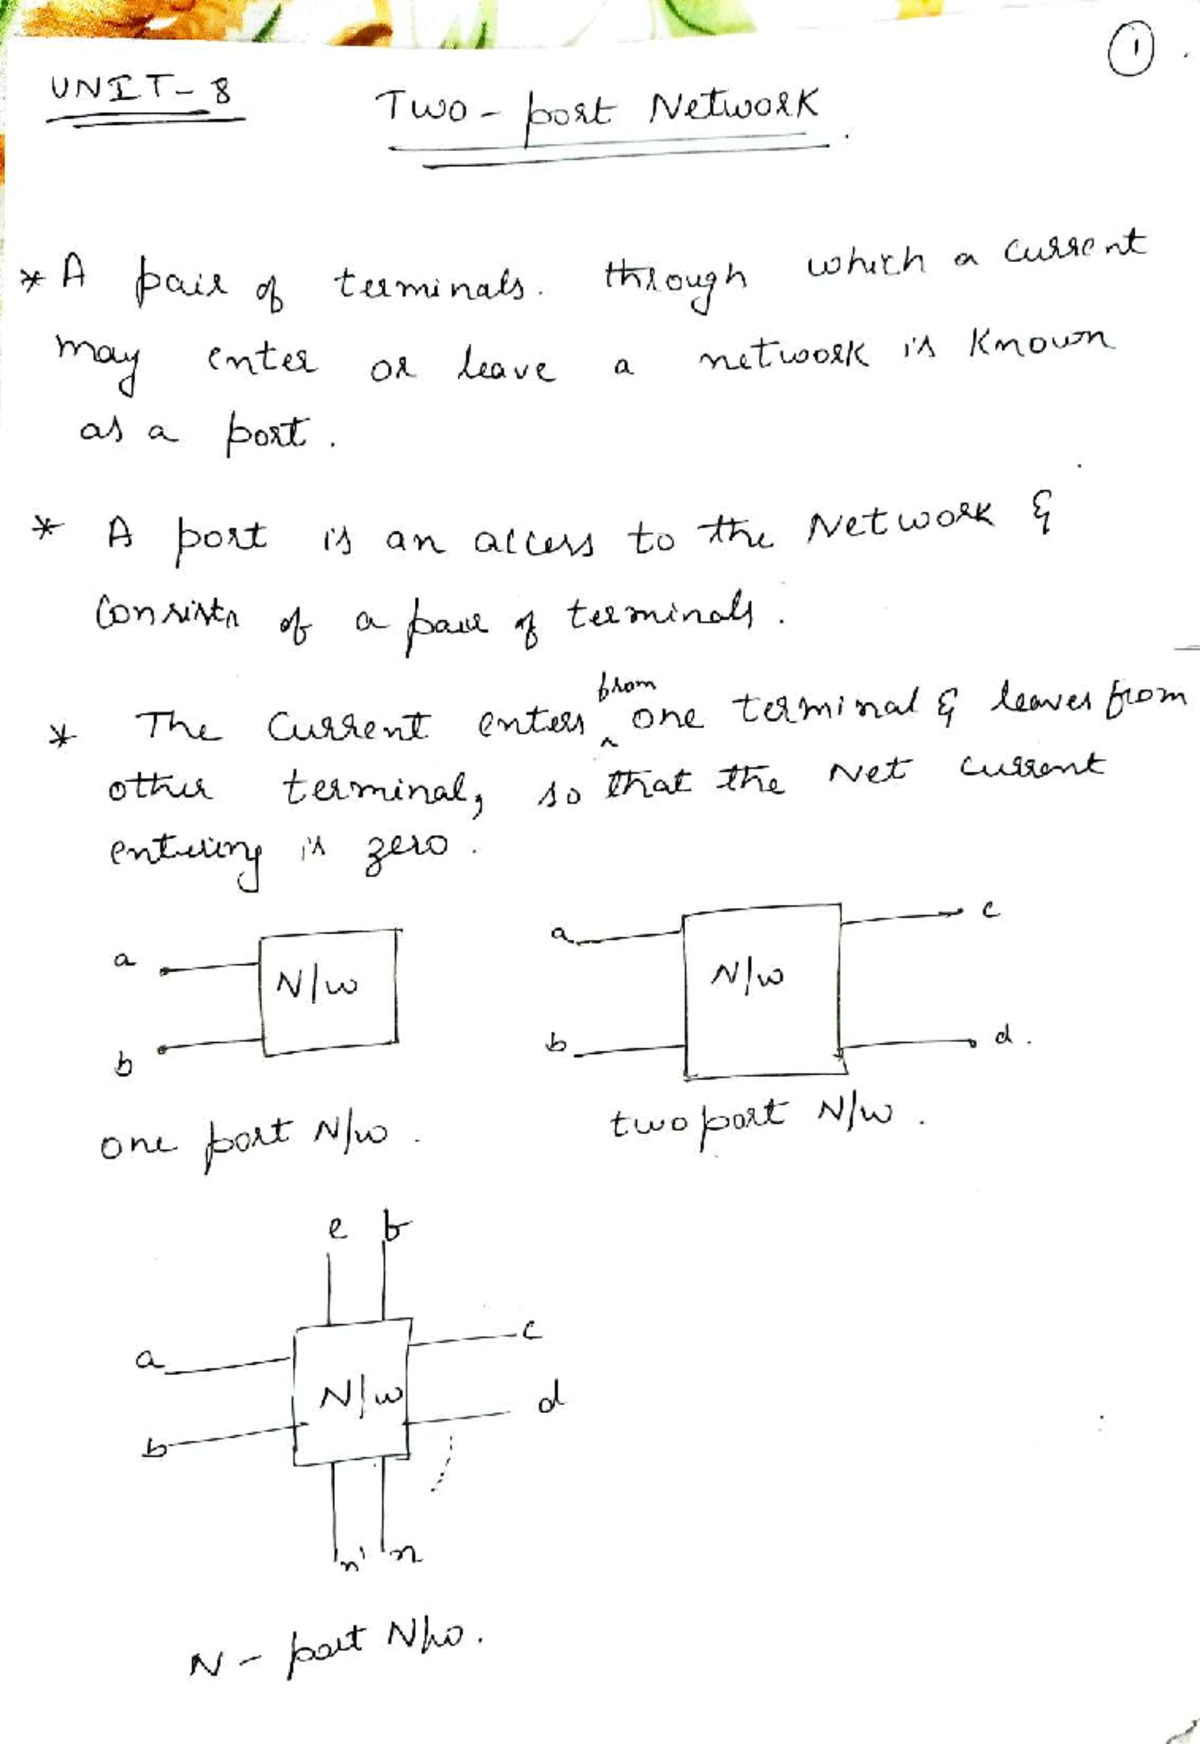 1
UNIT-8
Two-port Network
* A pair of terminals. through which a current
may enter or leave a network is known
as a port.
* A port is an access to the Network &
Consists of a pair of terminals.
from
* The Current enters ^ one terminal & leaves from
other terminal, so that the Net current
entering is zero.
a N/w
b
one port N/w.
a N/w c
b d.
two port N/w.
e f
a N/w c
b d
n' n
N-port N/w.